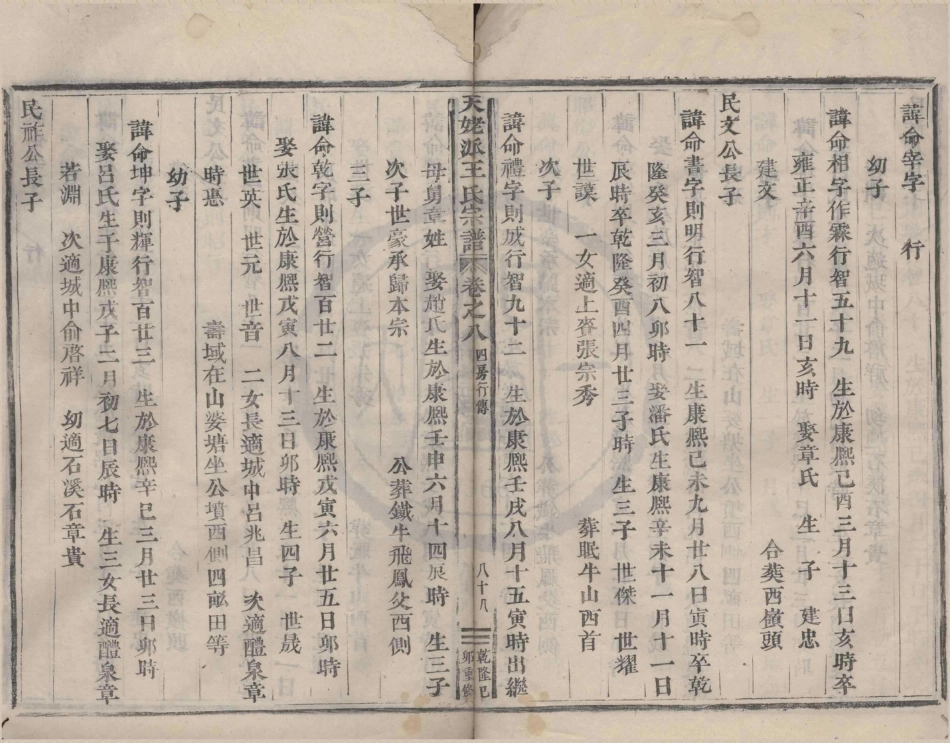 諱命宰字　行
幼子
諱命相字作霖行智五十九　生於康熙己酉三月十三日亥時卒
雍正辛酉六月十一日亥時　娶章氏　生二子　建忠
建文　合葬西嶺頭
民文公長子
諱命書字則明行智八十一　生康熙己未九月廿八日寅時卒乾
隆癸亥三月初八卯時　娶潘氏生康熙辛未十一月十一日
辰時卒乾隆癸酉四月廿三子時　生三子　世傑　世耀
世謨　一女適上齊張宗秀　葬眠牛山西首
次子
諱命禮字則成行智九十二　生於康熙壬戌八月十五寅時出繼
母舅章姓　娶趙氏生於康熙壬申六月十四辰時　生三子
次子世豪承歸本宗　公葬鐵牛飛鳳父西側
天姥派王氏宗譜　卷之八　四房行傳　八十八　乾隆己卯重修
三子
諱命乾字則營行智百廿二　生於康熙戊寅六月廿五日卯時
娶張氏生於康熙戊寅八月十三日卯時　生四子　世晟
世英　世元　世音　二女長適城中呂兆昌　次適醴泉章
時憲　壽域在山婆塘坐公墳酉側四畝田等
幼子
諱命坤字則輝行智百廿三　生於康熙辛巳三月廿三日卯時
娶呂氏生于康熙戊子二月初七日辰時　生三女長適醴泉章
若淵　次適城中俞啓祥　幼適石溪石章貴
民祚公長子